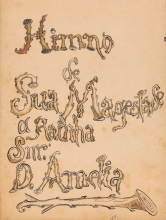 Himno
de
Sua Magestade
a Rainha
Snr.ª
D. Amelia